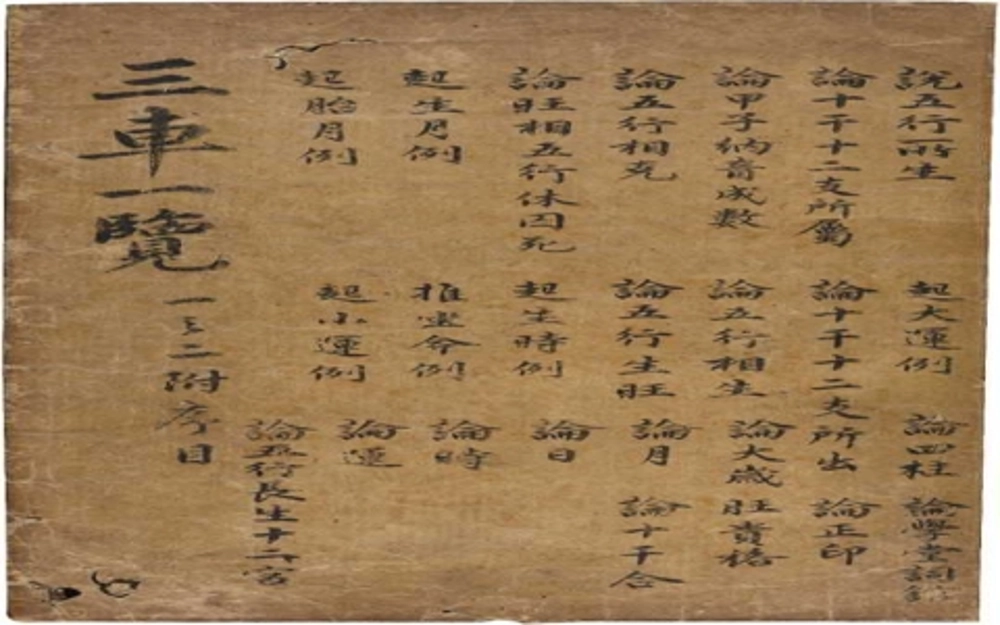 說五行所生
起大運例
論四柱
論學堂詞館
論十干十二支所屬
論十干十二支所出
論正印
論甲子納音成數
論五行相生
論大歲
旺貴格
論五行相克
論五行生旺
論月
論十干合
論旺相五行休囚死
起生時例
論日
起生月例
推坐命例
論時
起胎月例
起小運例
論運
論五行長生十二宮
三車一覽
一之二附序目